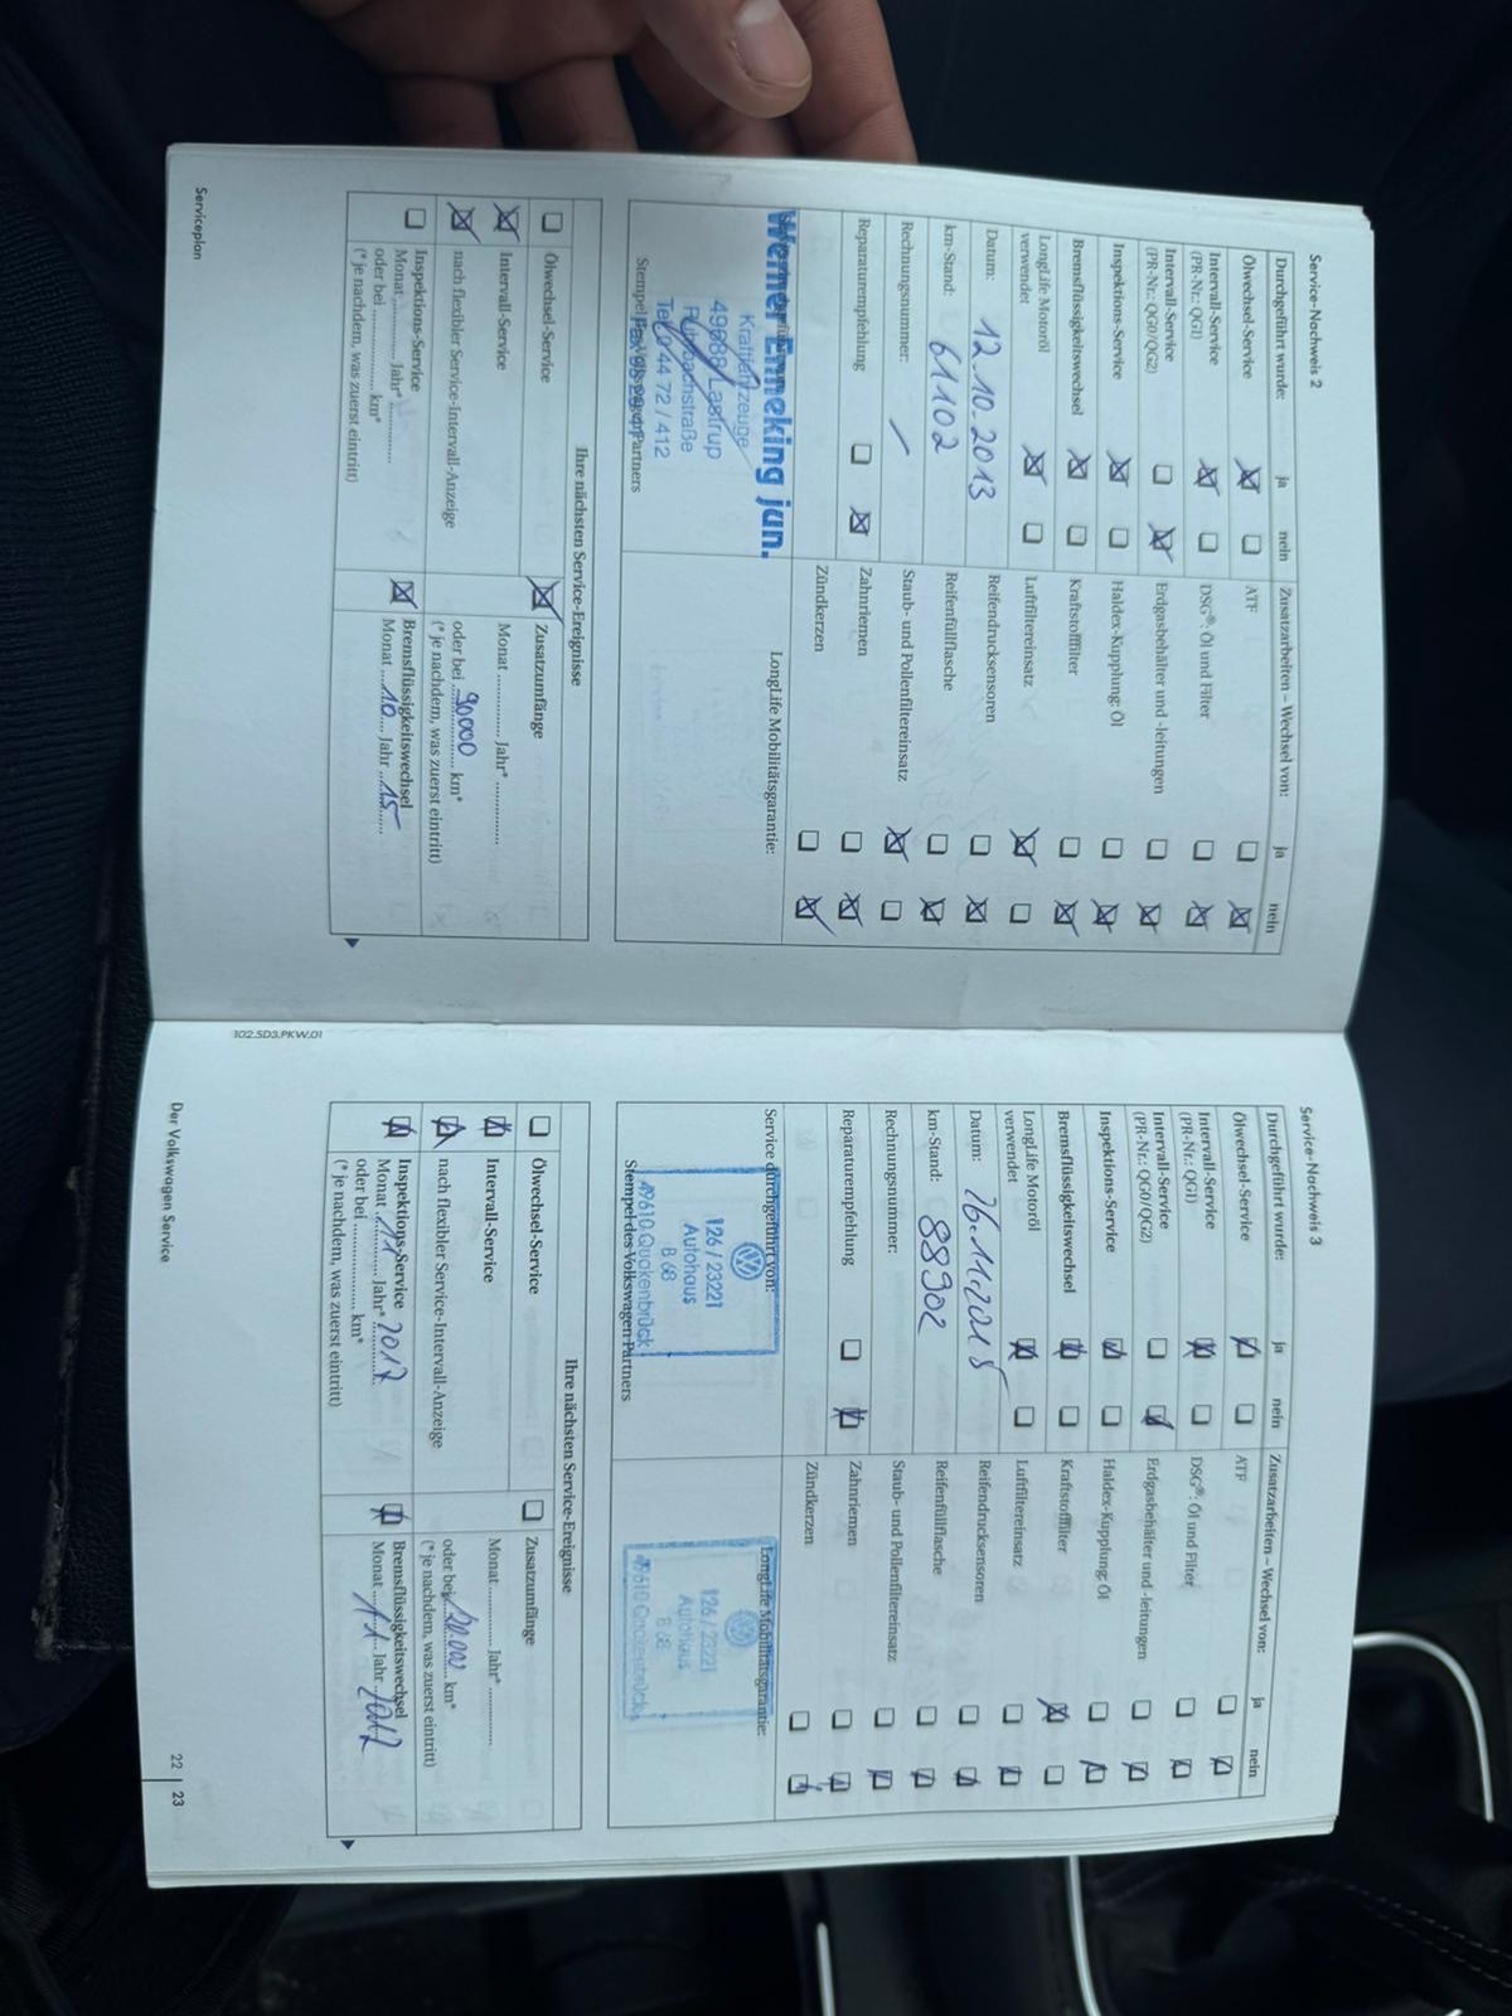 Service-Nachweis 2
Durchgeführt wurde: ja nein Zusatzarbeiten – Wechsel von: ja nein
Ölwechsel-Service ATF
Intervall-Service DSG®: Öl und Filter
(PR-Nr.: QG1)
Intervall-Service Erdgasbehälter und -leitungen
(PR-Nr.: QG0/QG2)
Inspektions-Service Haldex-Kupplung: Öl
Bremsflüssigkeitswechsel Kraftstofffilter
LongLife Motoröl Luftfiltereinsatz
verwendet
Datum: 12.10.2013 Reifendrucksensoren
km-Stand: 61102 Reifenfüllflasche
Rechnungsnummer: / Staub- und Pollenfiltereinsatz
Reparaturempfehlung Zahnriemen
Zündkerzen
Werner Enneking jun. LongLife Mobilitätsgarantie:
Kraftfahrzeuge
49688 Lastrup
Tel. 0 44 72 / 412
Stempel des Volkswagen Partners
Ihre nächsten Service-Ereignisse
Ölwechsel-Service Zusatzumfänge
Intervall-Service Monat ............ Jahr* ............
nach flexibler Service-Intervall-Anzeige oder bei 90000 km*
(* je nachdem, was zuerst eintritt)
Inspektions-Service Bremsflüssigkeitswechsel
Monat ............ Jahr* ............ Monat 10 Jahr 15
oder bei ............ km*
(* je nachdem, was zuerst eintritt)
Serviceplan
102.5D3.PKW.01
Service-Nachweis 3
Durchgeführt wurde: ja nein Zusatzarbeiten – Wechsel von: ja nein
Ölwechsel-Service ATF
Intervall-Service DSG®: Öl und Filter
(PR-Nr.: QG1)
Intervall-Service Erdgasbehälter und -leitungen
(PR-Nr.: QG0/QG2)
Inspektions-Service Haldex-Kupplung: Öl
Bremsflüssigkeitswechsel Kraftstofffilter
LongLife Motoröl Luftfiltereinsatz
verwendet
Datum: 26.11.2015 Reifendrucksensoren
km-Stand: 88902 Reifenfüllflasche
Rechnungsnummer: Staub- und Pollenfiltereinsatz
Reparaturempfehlung Zahnriemen
Zündkerzen
Service durchgeführt von: LongLife Mobilitätsgarantie:
126 / 23221 126 / 23221
Autohaus Autohaus
B 68 B 68
49610 Quakenbrück 49610 Quakenbrück
Stempel des Volkswagen Partners
Ihre nächsten Service-Ereignisse
Ölwechsel-Service Zusatzumfänge
Intervall-Service Monat ............ Jahr* ............
nach flexibler Service-Intervall-Anzeige oder bei km*
(* je nachdem, was zuerst eintritt)
Inspektions-Service Bremsflüssigkeitswechsel
Monat 11 Jahr* 2017 Monat 11 Jahr 2017
oder bei ............ km*
(* je nachdem, was zuerst eintritt)
Der Volkswagen Service
22 | 23